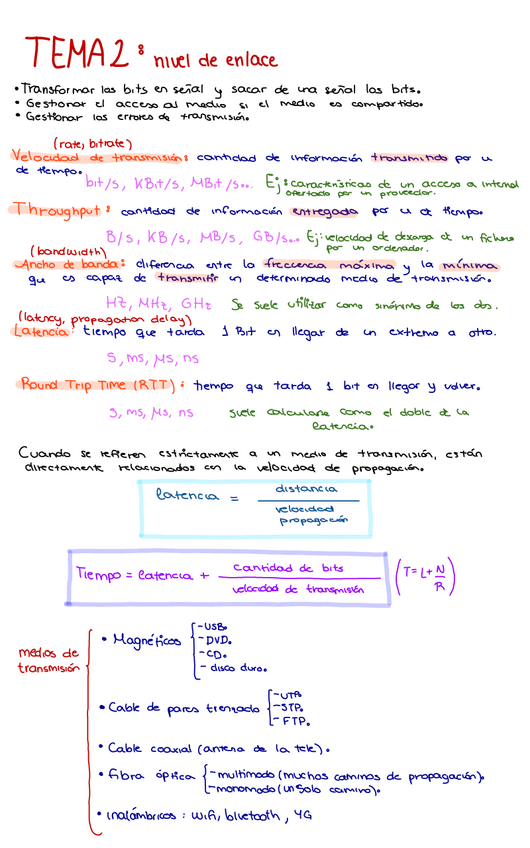 TEMA 2: nivel de enlace
• Transformar los bits en señal y sacar de una señal los bits.
• Gestionar el acceso al medio si el medio es compartido.
• Gestionar los errores de transmisión.
(rate, bitrate)
Velocidad de transmisión: cantidad de información transmitida por u
de tiempo.
bit/s, KBit/s, MBit/s... Ej: características de un acceso a internet
ofertado por un proveedor.
Throughput: cantidad de información entregada por u de tiempo.
B/s, KB/s, MB/s, GB/s... Ej: velocidad de descarga de un fichero
por un ordenador.
(bandwidth)
Ancho de banda: diferencia entre la frecuencia máxima y la mínima
que es capaz de transmitir un determinado medio de transmisión.
HZ, MHz, GHz Se suele utilizar como sinónimo de los dos.
(latency, propagation delay)
Latencia: tiempo que tarda 1 Bit en llegar de un extremo a otro.
S, ms, μs, ns
Round Trip Time (RTT): tiempo que tarda 1 bit en llegar y volver.
S, ms, μs, ns suele calcularse como el doble de la
latencia.
Cuando se refieren estrictamente a un medio de transmisión, están
directamente relacionados con la velocidad de propagación.
latencia = distancia
velocidad
propagación
Tiempo = latencia + cantidad de bits
velocidad de transmisión
(T = L + N
R)
medios de
transmisión
• Magnéticos
- USB.
- DVD.
- CD.
- disco duro.
• Cable de pares trenzado
- UTP.
- STP.
- FTP.
• Cable coaxial (antena de la tele).
• Fibra óptica
- multimodo (muchos caminos de propagación).
- monomodo (un solo camino).
• inalámbricos: wifi, bluetooth, 4G